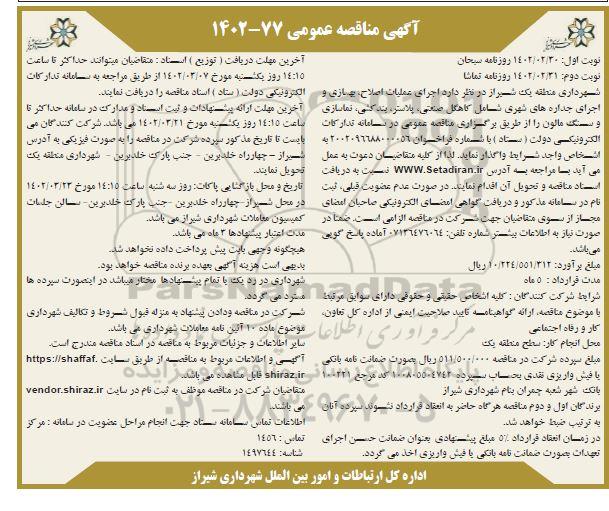 آگهی مناقصه عمومی ۷۷-۱۴۰۲
نوبت اول: ۱۴۰۲/۰۲/۳۰ روزنامه سبحان
نوبت دوم: ۱۴۰۲/۰۲/۳۱ روزنامه تماشا
شهرداری منطقه یک شیراز در نظر دارد اجرای عملیات اصلاح، بهسازی و
اجرای جداره های شهری شامل کاهگل صنعتی، پلاستر، بندکشی، نماسازی
و سنگ مالون را از طریق برگزاری مناقصه عمومی در سامانه تدارکات
الکترونیکی دولت ( ستاد ) با شماره فراخوان ۲۰۰۲۰۹۶۶۸۸۰۰۰۰۵۶ به
اشخاص واجد شرایط واگذار نماید. لذا از کلیه متقاضیان دعوت به عمل
می آید با مراجعه به آدرس WWW.Setadiran.ir نسبت به دریافت
اسناد مناقصه و تحویل آن اقدام نمایند. در صورت عدم عضویت قبلی، ثبت
نام در سامانه مذکور و دریافت گواهی امضای الکترونیکی صاحبان امضای
مجاز از سوی متقاضیان جهت شرکت در مناقصه الزامی است. ضمنا در
صورت نیاز به اطلاعات بیشتر شماره تلفن: ۰۷۱۳۶۴۷۶۰۶۴ آماده پاسخ گویی
می‌باشد.
مبلغ برآورد: ۱۰/۲۲۴/۵۵۱/۳۱۲ ریال
مدت قرارداد : ۵ ماه
شرایط شرکت کنندگان : کلیه اشخاص حقیقی و حقوقی دارای سوابق مرتبط
با موضوع مناقصه، ارائه گواهینامه تایید صلاحیت ایمنی از اداره کل تعاون،
کار و رفاه اجتماعی
محل انجام کار: سطح منطقه یک
مبلغ سپرده شرکت در مناقصه ۵۱۱/۵۰۰/۰۰۰ ریال بصورت ضمانت نامه بانکی
یا فیش واریزی نقدی بحساب سپرده ۱۰۰۸۰۵۵۰۴۷۴۲ کد مرجع ۱۰۰۲۲۱
بانک شهر شعبه چمران بنام شهرداری شیراز
برندگان اول و دوم مناقصه هرگاه حاضر به انعقاد قرارداد نشوند سپرده آنان
به ترتیب ضبط خواهد شد.
در زمان انعقاد قرارداد ۵% مبلغ پیشنهادی بعنوان ضمانت حسن اجرای
تعهدات بصورت ضمانت نامه بانکی یا فیش واریزی اخذ می گردد.
آخرین مهلت دریافت ( توزیع ) اسناد : متقاضیان میتوانند حداکثر تا ساعت
۱۴:۱۵ روز یکشنبه مورخ ۱۴۰۲/۰۳/۰۷ از طریق مراجعه به سامانه تدارکات
الکترونیکی دولت ( ستاد ) اسناد مناقصه را دریافت نمایند.
آخرین مهلت ارائه پیشنهادات و ثبت اسناد و مدارک در سامانه حداکثر تا
ساعت ۱۴:۱۵ روز یکشنبه مورخ ۱۴۰۲/۰۳/۲۱ می باشد. شرکت کنندگان می
بایست تا تاریخ مذکور سپرده شرکت در مناقصه را به صورت فیزیکی به آدرس
شیراز – چهارراه خلدبرین – جنب پارک خلدبرین - شهرداری منطقه یک
تحویل نمایند.
تاریخ و محل بازگشایی پاکات: روز سه شنبه ساعت ۱۴:۱۵ مورخ ۱۴۰۲/۰۳/۲۳
در محل شیراز-چهارراه خلدبرین -جنب پارک خلدبرین- سالن جلسات
کمیسیون معاملات شهرداری شیراز می باشد.
مدت اعتبار پیشنهادها ۳ ماه می باشد.
هیچگونه وجهی بابت پیش پرداخت داده نخواهد شد.
بدیهی است هزینه آگهی بعهده برنده مناقصه خواهد بود.
شهرداری در رد یک یا تمام پیشنهادها مختار میباشد در اینصورت سپرده ها
مسترد می گردد.
شرکت در مناقصه ودادن پیشنهاد به منزله قبول شروط و تکالیف شهرداری
موضوع ماده ۱۰ آئین نامه معاملات شهرداری می باشد.
سایر اطلاعات و جزئیات مربوط به مناقصه در اسناد مناقصه مندرج است.
آگهی و اطلاعات مربوط به مناقصه از طریق سایت https://shaffaf.
shiraz.ir قابل مشاهده می باشد.
متقاضیان شرکت در مناقصه موظف به ثبت نام در سایت vendor.shiraz.ir
می باشند.
اطلاعات تماس سامانه ستاد جهت انجام مراحل عضویت در سامانه : مرکز
تماس : ۱۴۵۶
شناسه: ۱۴۹۷۶۴۴
اداره کل ارتباطات و امور بین الملل شهرداری شیراز
ParsNamadData
۰۲۱-۸۸۳۴۹۶۷۰-۵